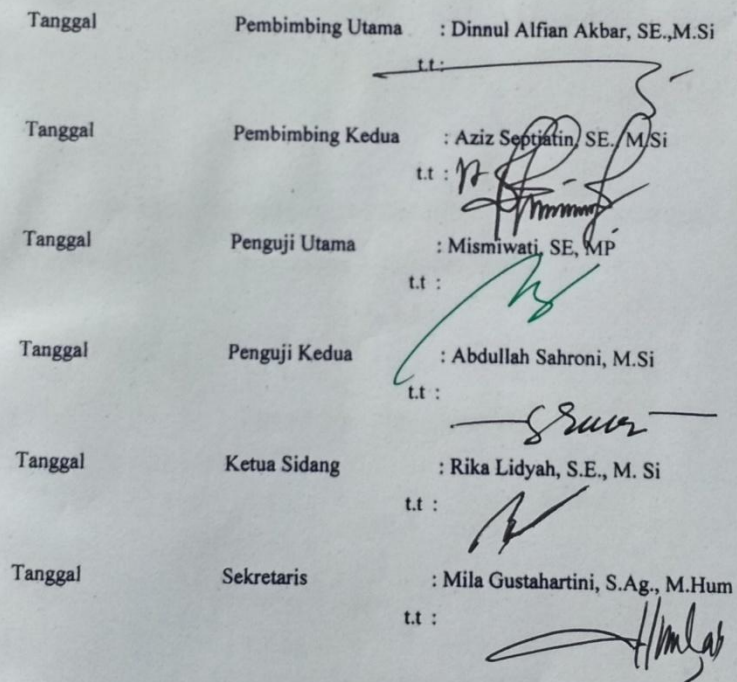 Tanggal Pembimbing Utama : Dinnul Alfian Akbar, SE.,M.Si
t.t :
Tanggal Pembimbing Kedua : Aziz Septiatin, SE., M.Si
t.t :
Tanggal Penguji Utama : Mismiwati, SE, MP
t.t :
Tanggal Penguji Kedua : Abdullah Sahroni, M.Si
t.t :
Tanggal Ketua Sidang : Rika Lidyah, S.E., M. Si
t.t :
Tanggal Sekretaris : Mila Gustahartini, S.Ag., M.Hum
t.t :